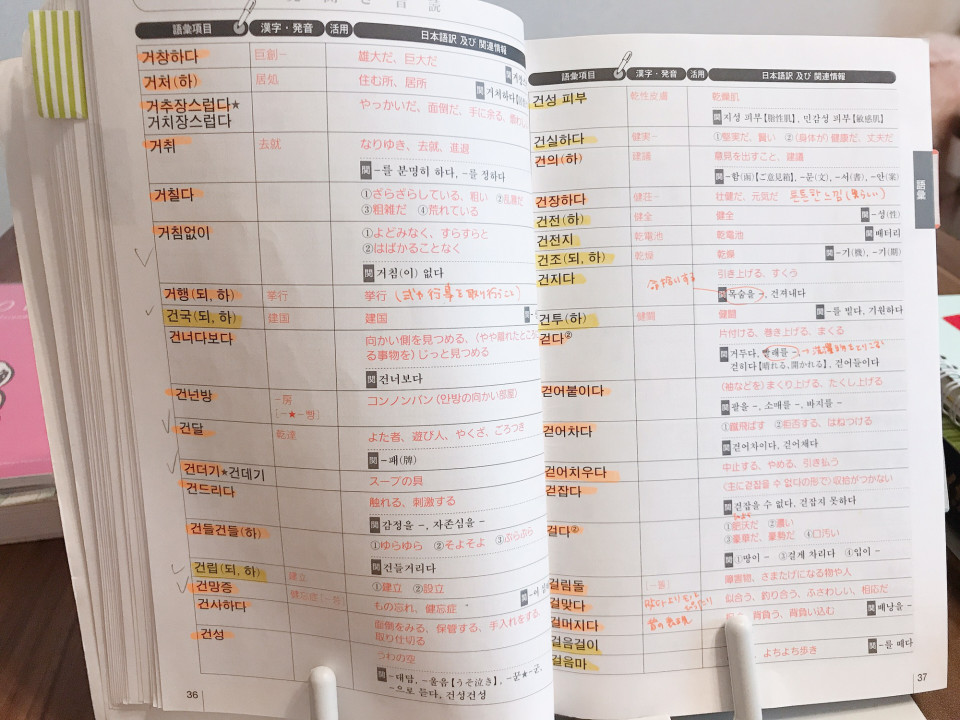 語彙項目 漢字・発音 活用 日本語訳 及び 関連情報
거창하다 巨創- 雄大だ、巨大だ
거처(하) 居処 住む所、居所
関 거처하다
거추장스럽다★ やっかいだ、面倒だ、手に余る、
거치장스럽다
거취 去就 なりゆき、去就、進退
関 -를 분명히 하다, -를 정하다
거칠다 ①ざらざらしている、粗い ②乱暴だ
③粗雑だ ④荒れている
거침없이 ①よどみなく、すらすらと
②はばかることなく
関 거침(이) 없다
거행(되, 하) 挙行 挙行 (式や行事を取り行うこと)
건국(되, 하) 建国 建国
건너다보다 向かい側を見つめる、(やや離れたところ
る事物を)じっと見つめる
関 건너보다
건넌방 -房 コンノンバン(안방の向かい部屋)
[-★-빵]
건달 乾達 よた者、遊び人、やくざ、ごろつき
関 -패(牌)
건더기★건데기 スープの具
건드리다 触れる、刺激する
関 감정을 -, 자존심을 -
건들건들(하) ①ゆらゆら ②そよそよ ③ぶらぶら
関 건들거리다
건립(되, 하) 建立 ①建立 ②設立
건망증 健忘症[-쯩] もの忘れ、健忘症
건사하다 面倒をみる、保管する、手入れをする、
取り仕切る
건성 うわの空
関 -대답, -울음【うそ泣き】, -꾼★-군,
-으로 듣다, 건성건성
36
語彙項目 漢字・発音 活用 日本語訳 及び 関連情報
건성 피부 乾性皮膚 乾燥肌
関 지성 피부【脂性肌】, 민감성 피부【敏感肌】
건실하다 健実- ①堅実だ、賢い ②(身体が)健康だ、丈夫だ
건의(하) 建議 意見を出すこと、建議
関 -함(函)【ご意見箱】, -문(文), -서(書), -안(案)
건장하다 健荘- 壮健だ、元気だ 튼튼한 느낌(男らしい)
건전(하) 健全 健全 関 -성(性)
건전지 乾電池 乾電池 関 배터리
건조(되, 하) 乾燥 乾燥 関 -기(機), -기(期)
건지다 引き上げる、すくう
関 목숨을 -, 건져내다
건투(하) 健闘 健闘 関 -를 빌다, 기원하다
걷다② 片付ける、巻き上げる、まくる
関 거두다, 빨래를 -
걷히다【晴れる、開かれる】, 걷어들이다
걷어붙이다 (袖などを)まくり上げる、たくし上げる
関 팔을 -, 소매를 -, 바지를 -
걷어차다 ①蹴飛ばす ②拒否する、はねつける
関 걷어차이다, 걷어채다
걷어치우다 中止する、やめる、引き払う
걷잡다 (主に걷잡을 수 없다の形で)収拾がつかない
関 걷잡을 수 없다, 걷잡지 못하다
걸다② ①肥沃だ ②濃い
③豪華だ、豪勢だ ④口汚い
関 ①땅이 - ③걸게 차리다 ④입이 -
걸림돌 [-똘] 障害物、さまたげになる物や人
걸맞다 似合う、釣り合う、ふさわしい、相応だ
걸머지다 背負う、背負い込む 関 배낭을 -
걸음걸이 関 -를 떼다
걸음마 よちよち歩き
37
語彙